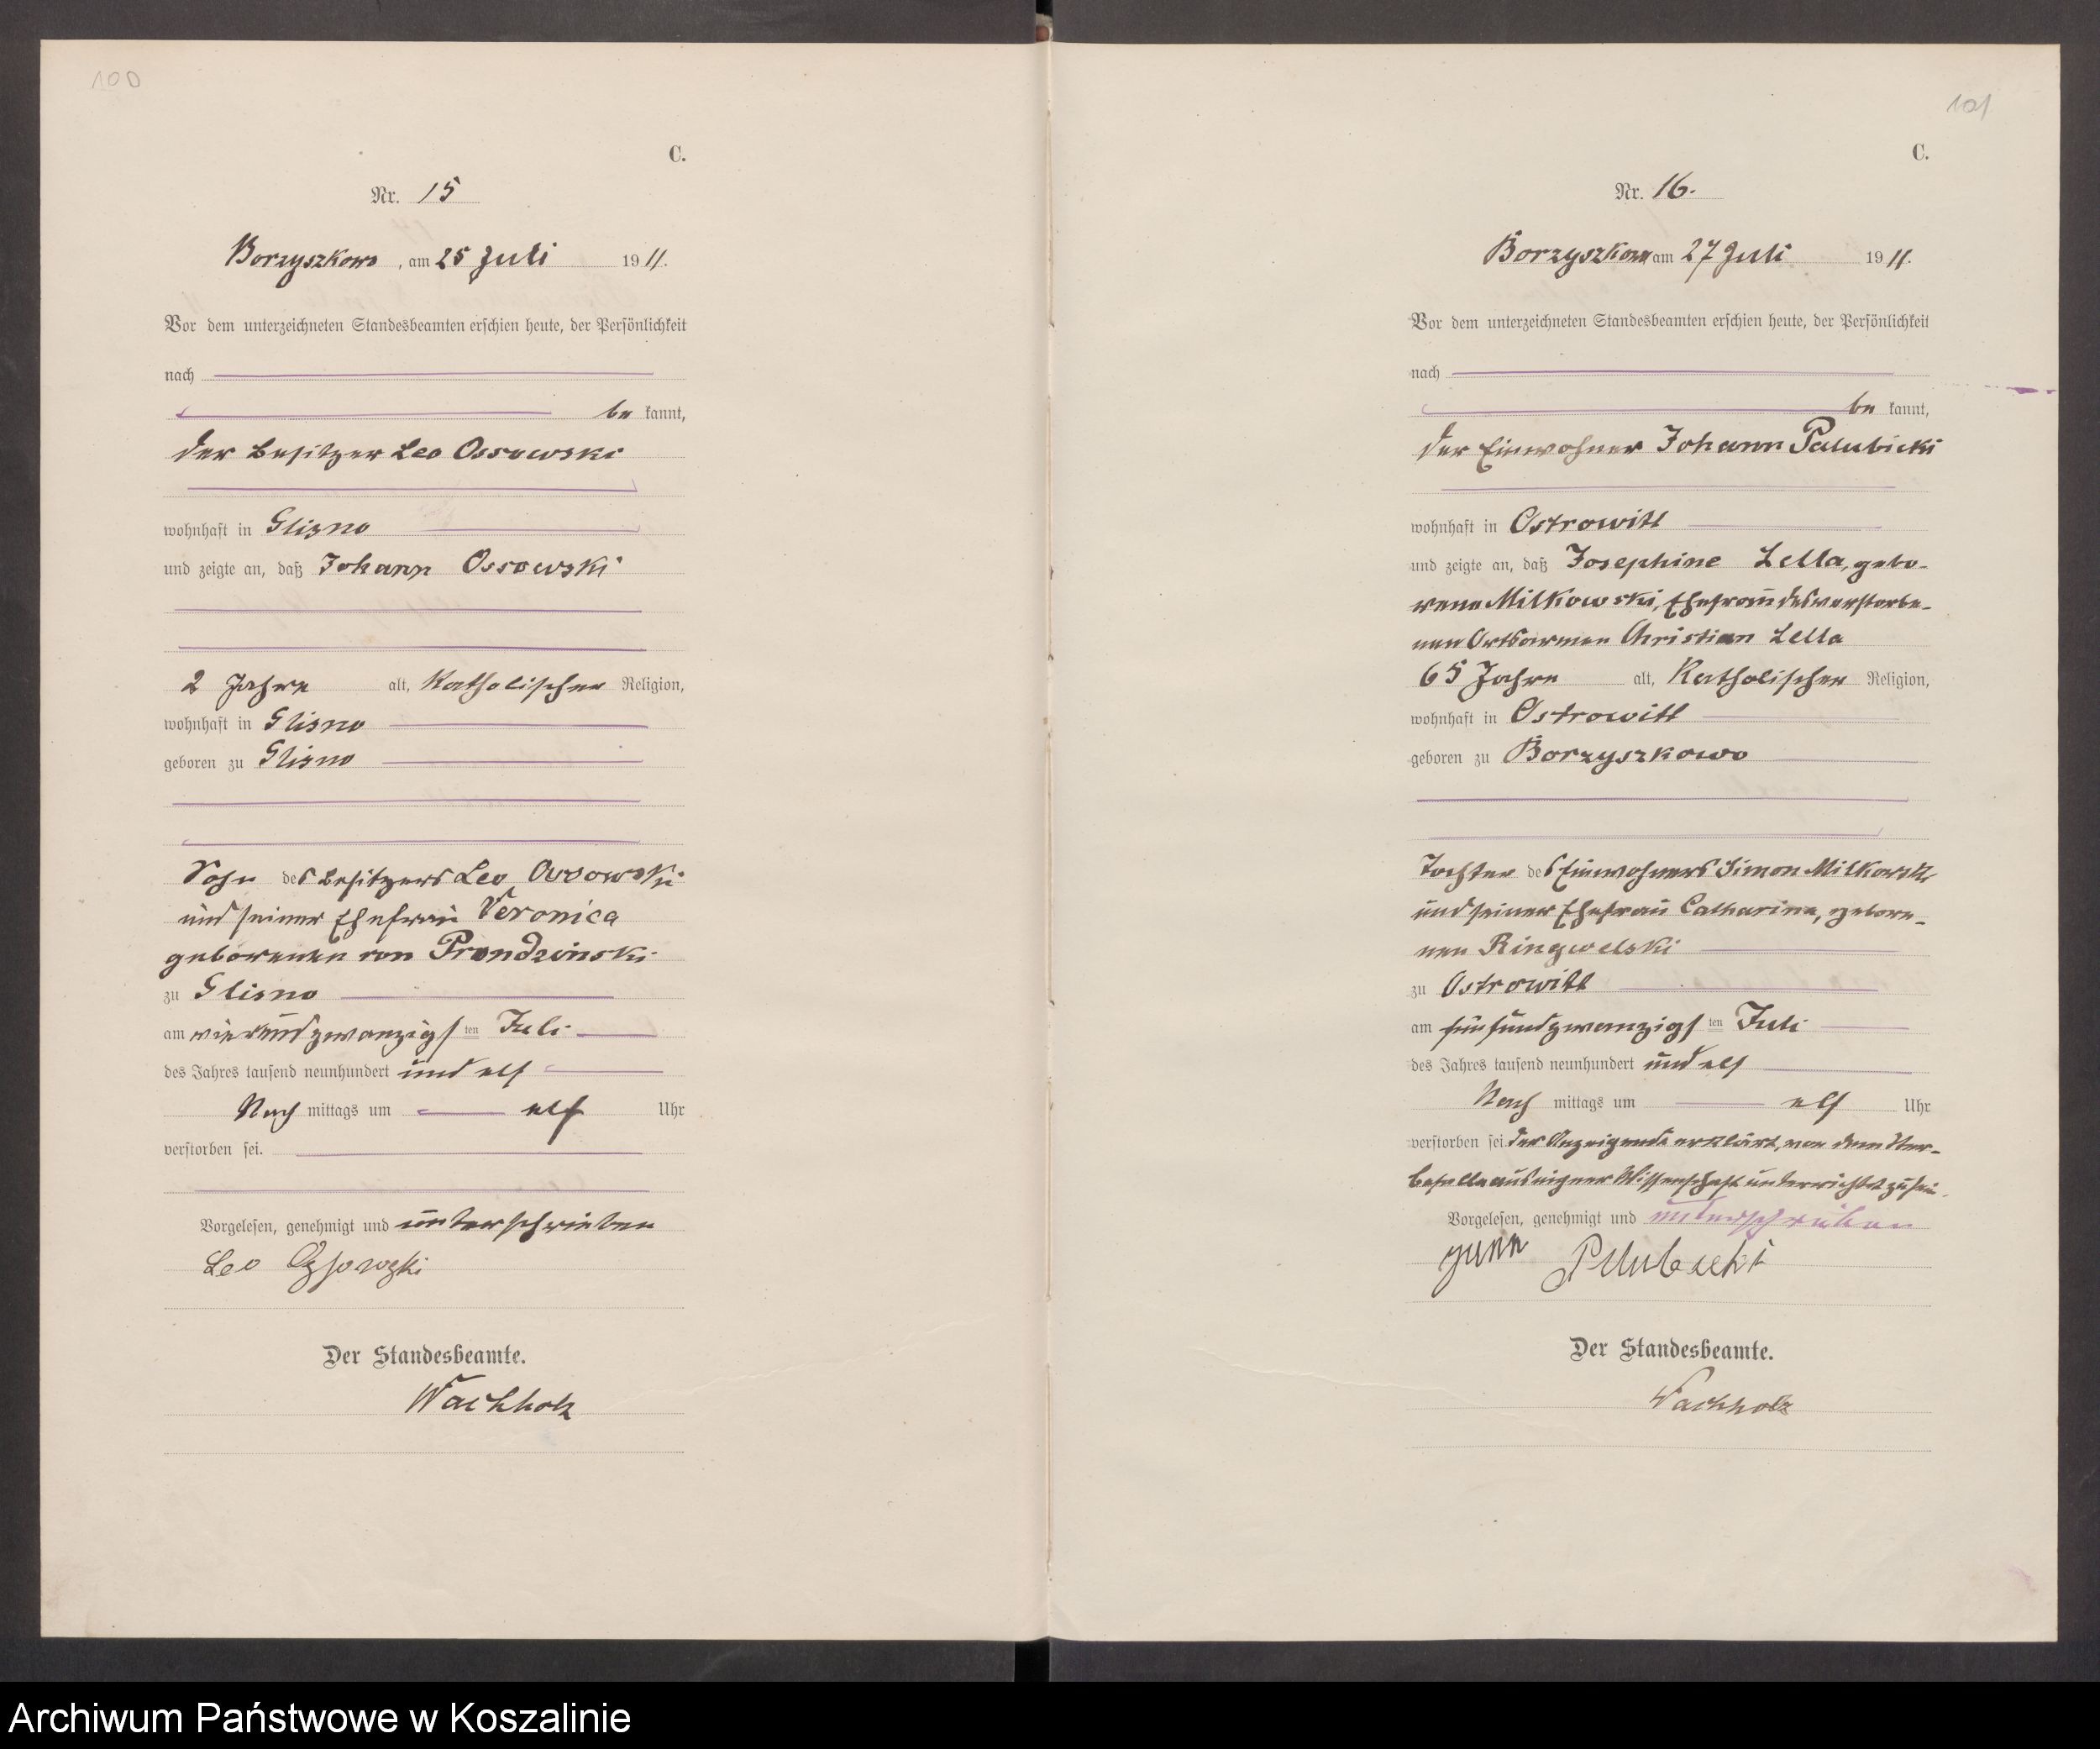 100
C.
Nr. 15
Borzyszkowo, am 25 Juli 1911.
Vor dem unterzeichneten Standesbeamten erschien heute, der Persönlichkeit
nach
be kannt,
der Besitzer Leo Ossowski
wohnhaft in Glisno
und zeigte an, daß Johann Ossowski
2 Jahre alt, Katholischer Religion,
wohnhaft in Glisno
geboren zu Glisno
Sohn des Besitzers Leo Ossowski
und seiner Ehefrau Veronica
geborenen von Prondzinski
zu Glisno
am vierundzwanzigsten Juli
des Jahres tausend neunhundert und elf
Nach mittags um elf Uhr
verstorben sei.
Vorgelesen, genehmigt und unterschrieben
Leo
Der Standesbeamte.
Wachholz
101
C.
Nr. 16.
Borzyszkowo am 27 Juli 1911.
Vor dem unterzeichneten Standesbeamten erschien heute, der Persönlichkeit
nach
be kannt,
der Einwohner Johann Palubicki
wohnhaft in Ostrowitt
und zeigte an, daß Josephine Lella, gebo-
rene Milkowski, Ehefrau des verstorbe-
nen Ortsarmen Christian Lella
65 Jahre alt, Katholischer Religion,
wohnhaft in Ostrowitt
geboren zu Borzyszkowo
Tochter des Einwohners Simon Milkowski
und seiner Ehefrau Catharina, gebore-
nen Ringwelski
zu Ostrowitt
am fünfundzwanzigsten Juli
des Jahres tausend neunhundert und elf
Nach mittags um elf Uhr
verstorben sei. Der Anzeigende erklärt, von dem Ster-
befalle aus eigner Wissenschaft unterrichtet zu sein.
Vorgelesen, genehmigt und unterschrieben
Der Standesbeamte.
Wachholz
Archiwum Państwowe w Koszalinie